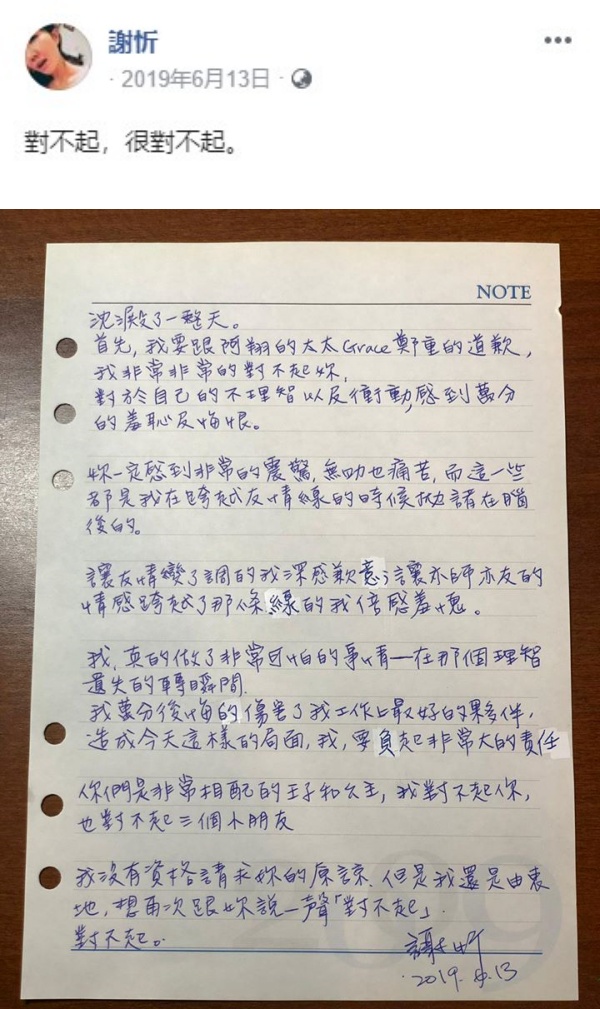 謝忻
· 2019年6月13日 ·
對不起，很對不起。
NOTE
沈澱了一整天。
首先，我要跟阿翔的太太Grace鄭重的道歉，
我非常非常的對不起妳，
對於自己的不理智以及衝動，感到萬分
的羞恥及悔恨。
妳一定感到非常的震驚，無助也痛苦，而這一些
都是我在跨越友情線的時候拋諸在腦
後的。
讓友情變了調的我深感歉意；讓亦師亦友的
情感跨越了那條線的我倍感羞愧。
我，真的做了非常可怕的事情—在那個理智
遺失的轉瞬間．
我萬分後悔的傷害了我工作上最好的夥伴，
造成今天這樣的局面，我，要負起非常大的責任
你們是非常相配的王子和公主，我對不起你，
也對不起三個小朋友
我沒有資格請求妳的原諒．但是我還是由衷
地，想再次跟妳說一聲「對不起」．
對不起。
謝忻
2019. 6.13